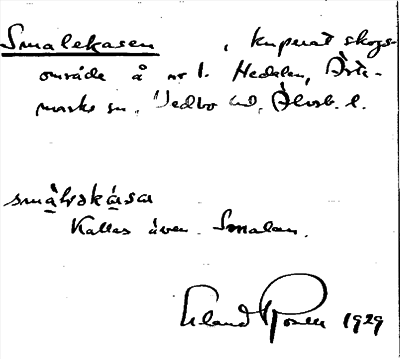 Smalekasen, kuperat skogs-
område å nr 1. Hedalen, Ärte-
marks sn, Vedbo hd, Älvsb. l.
smalǝskása
Kallas även Smalan.
Erland Rosell 1929